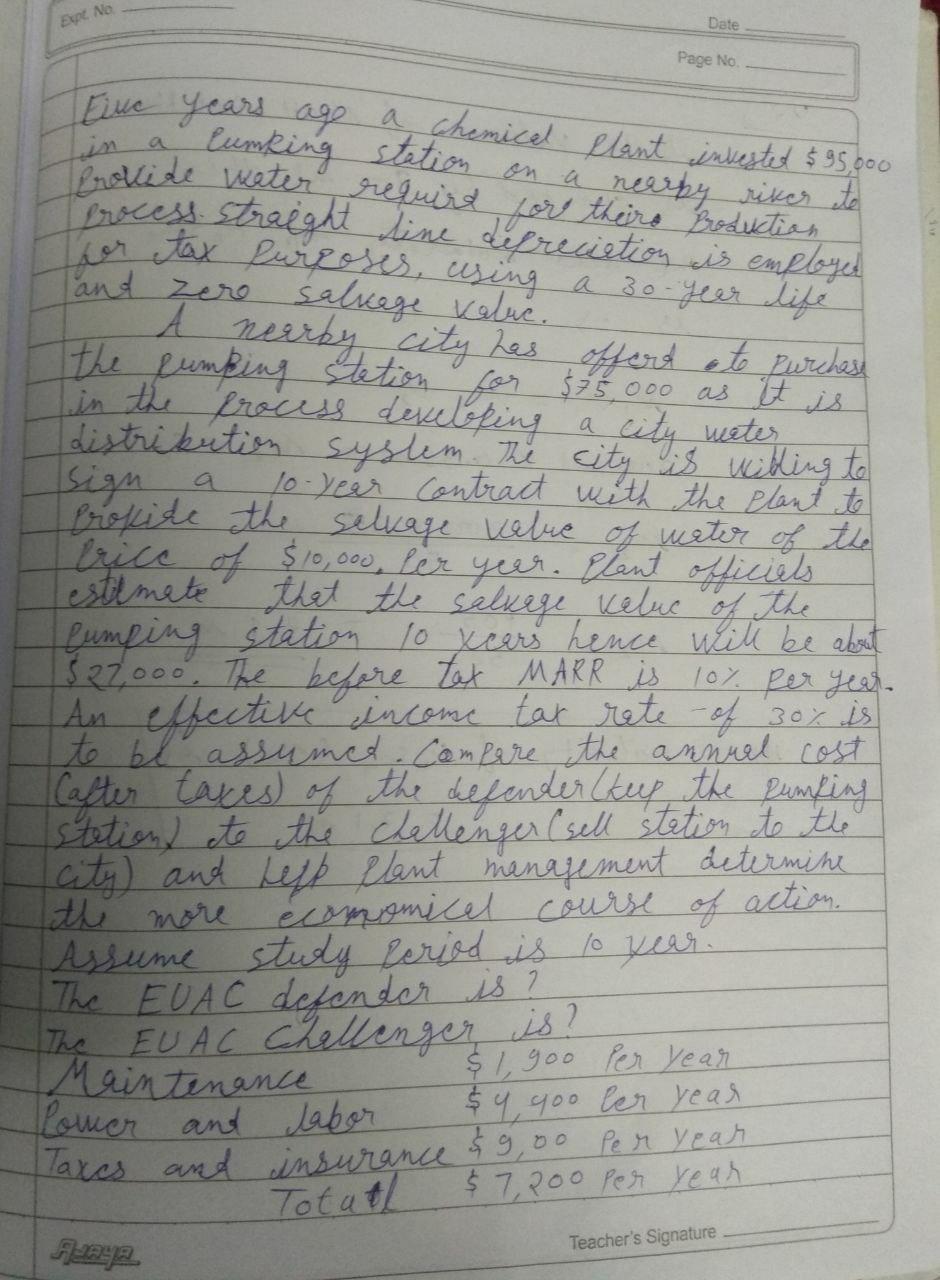 Expt. No.
Date
Page No.
Five years ago a chemical plant invested $95,000
in a Pumping station on a nearby river to
Provide water requird for their Production
Process. Straight line depreciation is employed
for tax Purposes, using a 30-year life
and zero salvage value.
A nearby city has offerd to purchase
the pumping station for $75,000 as it is
in the process developing a city water
distribution system. The city is willing to
sign a 10-year contract with the plant to
Provide the salvage value of water of the
Price of $10,000. Per year. Plant officials
estimate that the salvage value of the
pumping station 10 years hence will be about
$27,000. The before tax MARR is 10% per year.
An effective income tax rate of 30% is
to be assumed. Compare the annual cost
(after taxes) of the defender (keep the pumping
station) to the challenger (sell station to the
city) and help plant management determine
the more economical course of action.
Assume study period is 10 year.
The EUAC defender is?
The EUAC Challenger is?
Maintenance $1,900 Per Year
Power and labor $4,400 Per Year
Taxes and insurance $9,00 Per Year
Total $7,200 Per Year
Ajaya
Teacher's Signature